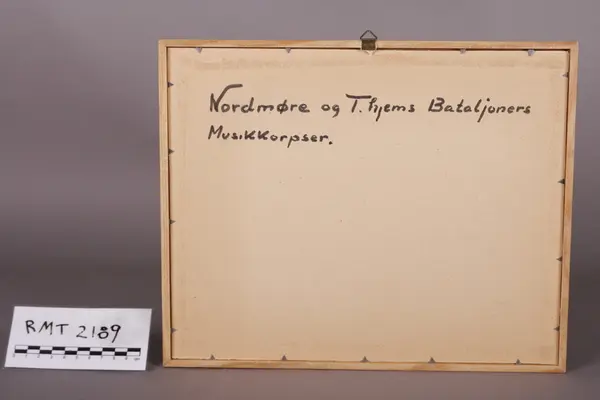 Nordmøre og T.hjems Bataljoners
Musikkorpser.
RMT 2189